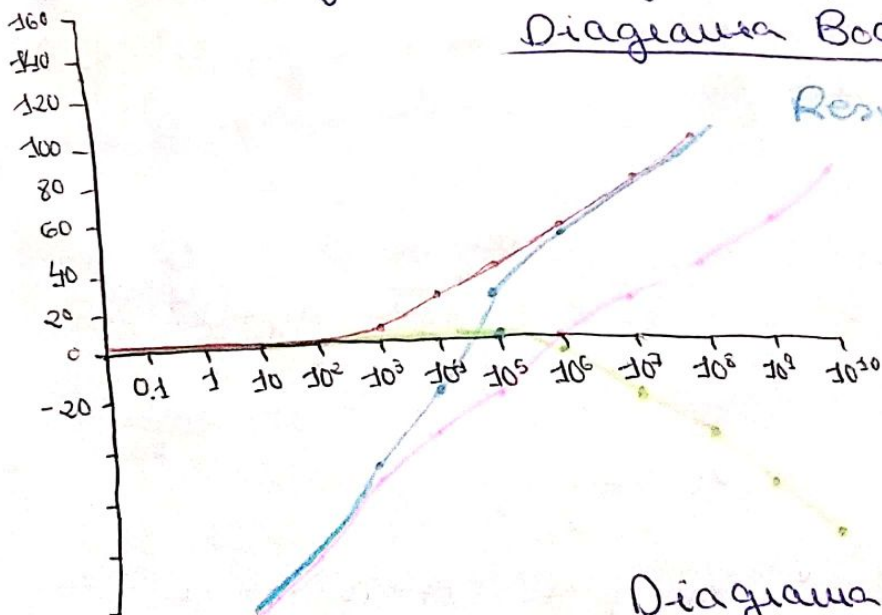 Diagrama Bo
Res
160
140
120
100
80
60
40
20
0
0.1 1 10 10² 10³ 10⁴ 10⁵ 10⁶ 10⁷ 10⁸ 10⁹ 10¹⁰
-20
Diagrama